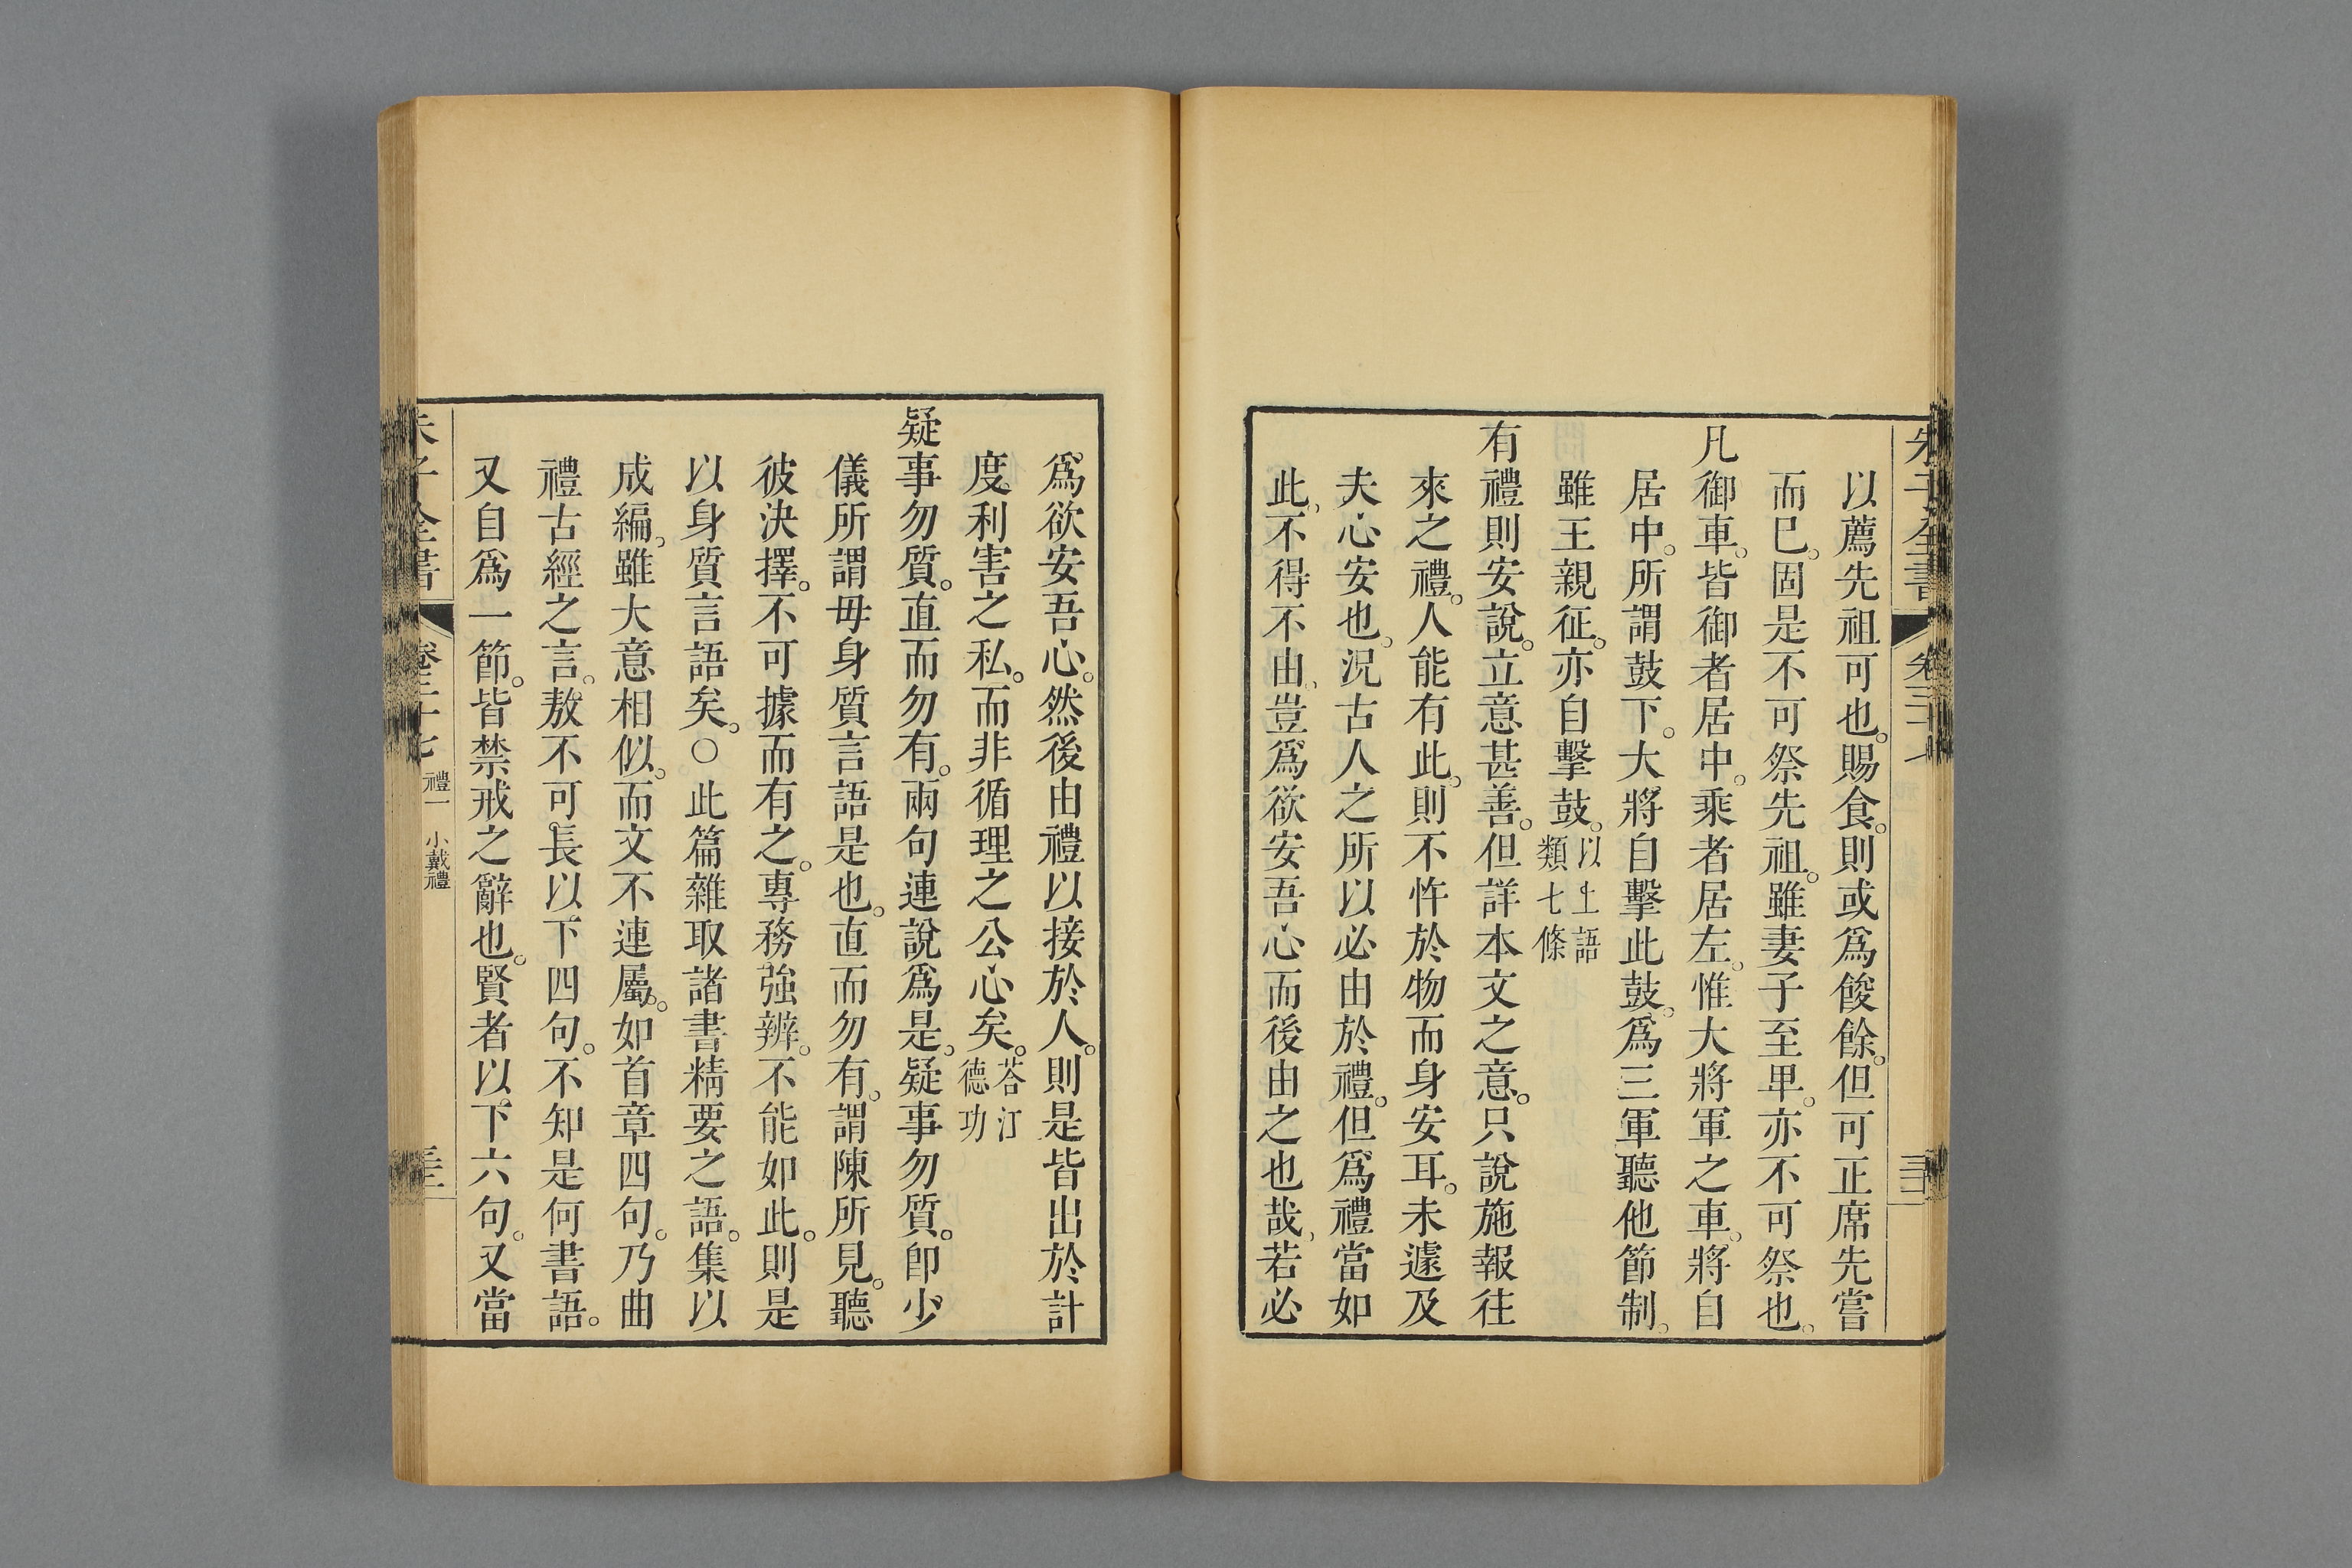 朱子全書 卷三十七
以薦先祖可也。賜食。則或爲餕餘。但可正席先嘗
而巳。固是不可祭先祖。雖妻子至卑。亦不可祭也。
凡御車。皆御者居中。乘者居左。惟大將軍之車。將自
居中。所謂鼓下。大將自擊此鼓。爲三軍聽他節制。
雖王親征。亦自擊鼓。以上語類七條
有禮則安說。立意甚善。但詳本文之意。只說施報往
來之禮。人能有此。則不忤於物而身安耳。未遽及
夫心安也。況古人之所以必由於禮。但爲禮當如
此。不得不由。豈爲欲安吾心而後由之也哉。若必
爲欲安吾心。然後由禮以接於人。則是皆出於計
度。利害之私。而非循理之公心矣。荅汪德功
疑事勿質。直而勿有。兩句連說爲是。疑事勿質。卽少
儀所謂毋身質言語是也。直而勿有。謂陳所見。聽
彼決擇。不可據而有之。專務強辨。不能如此。則是
以身質言語矣。○此篇雜取諸書精要之語。集以
成編。雖大意相似。而文不連屬。如首章四句。乃曲
禮古經之言。敖不可長以下四句。不知是何書語。
又自爲一節。皆禁戒之辭也。賢者以下六句。又當
朱子全書 卷三十七 禮一 小戴禮